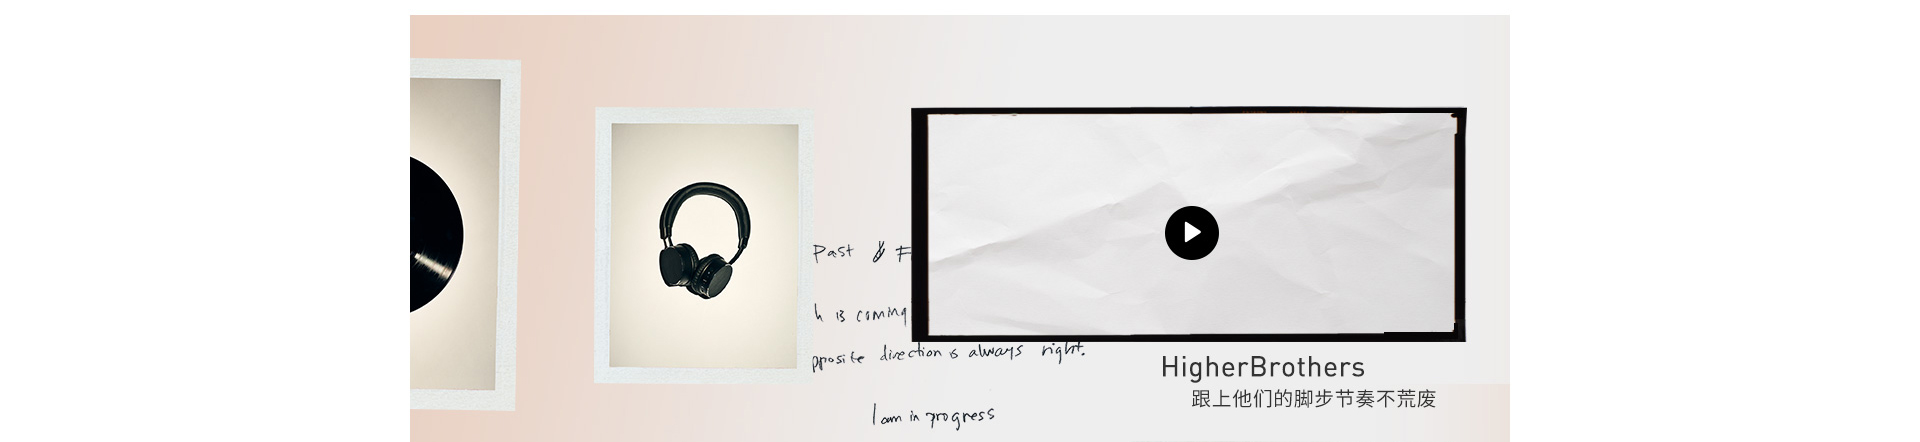 Past & F
h is coming
pposite direction is always right.
I am in progress
HigherBrothers
跟上他们的脚步节奏不荒废